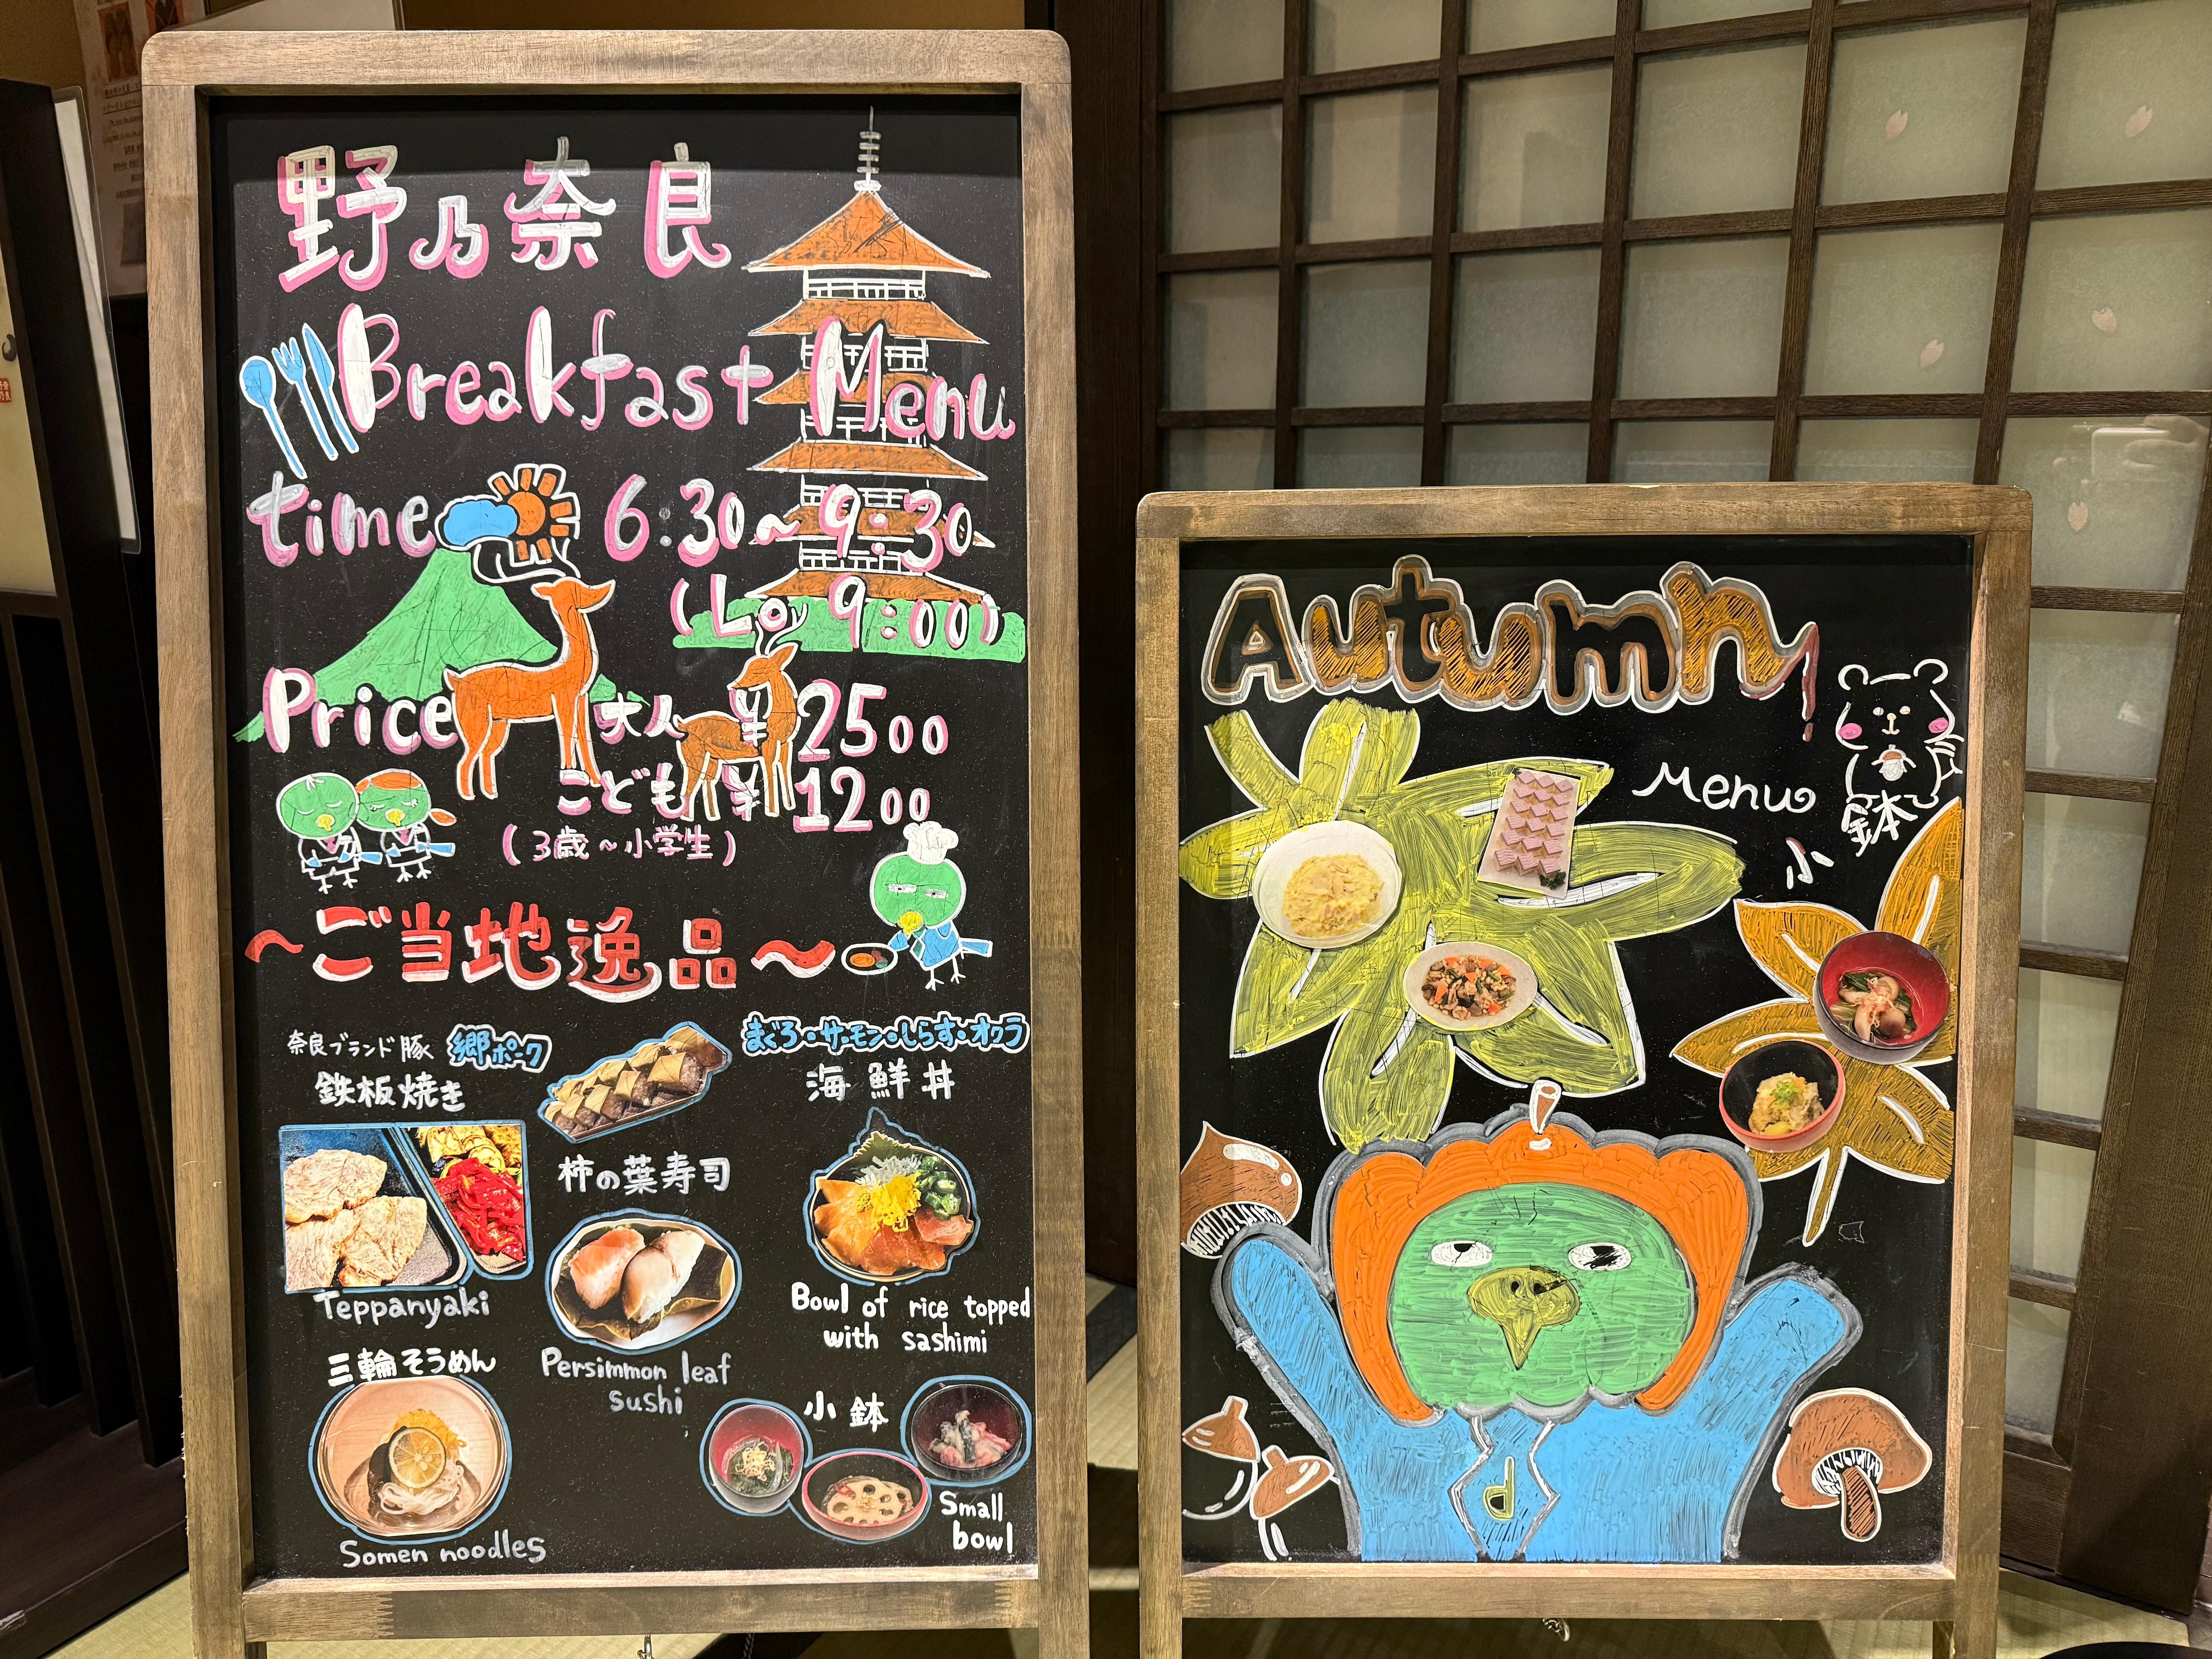 野乃奈良
Breakfast Menu
time 6:30~9:30
(Lo 9:00)
Price 大人 ¥2500
こども ¥1200
(3歳~小学生)
~ご当地逸品~
奈良ブランド豚 郷ポーク
鉄板焼き
Teppanyaki
柿の葉寿司
Persimmon leaf
sushi
まぐろ・サーモン・しらす・オクラ
海鮮丼
Bowl of rice topped
with sashimi
三輪そうめん
Somen noodles
小鉢
Small
bowl
Autumn
Menu
小鉢
d